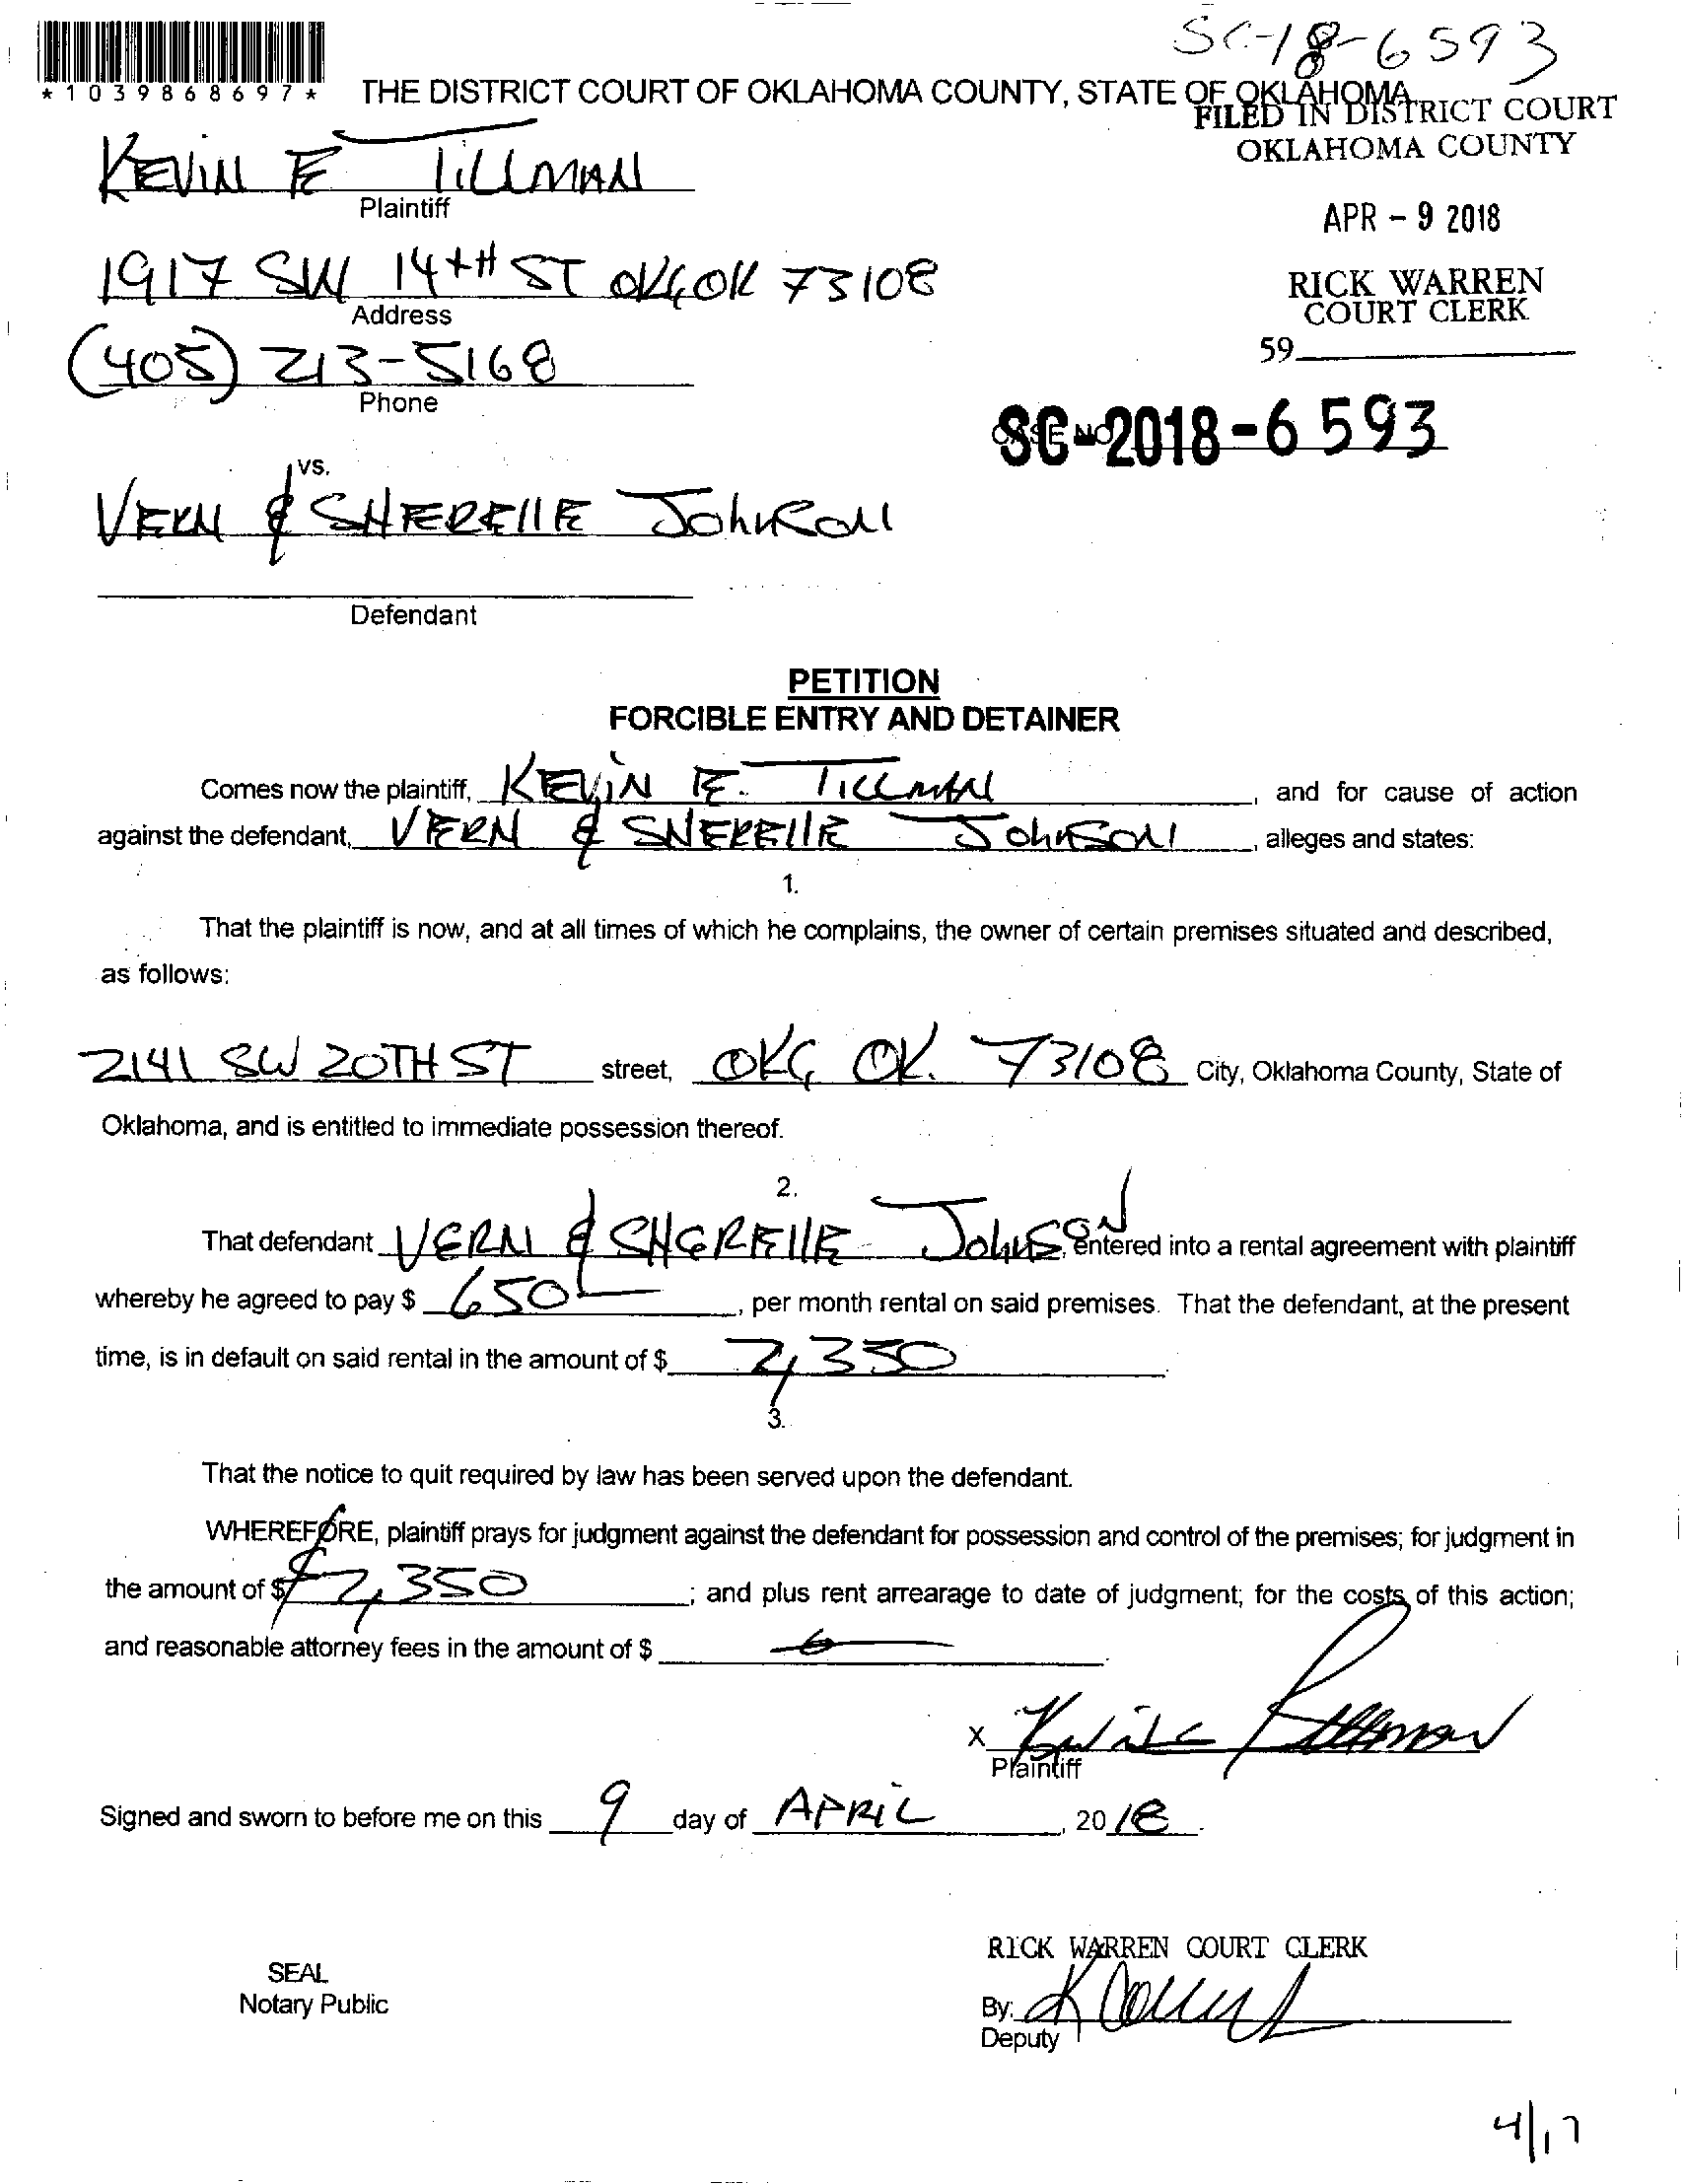 SC-18-6593
*1039868697*
THE DISTRICT COURT OF OKLAHOMA COUNTY, STATE OF OKLAHOMA
FILED IN DISTRICT COURT
OKLAHOMA COUNTY
KEVIN E TILLMAN
Plaintiff
APR - 9 2018
1917 SW 14TH ST OKC OK 73108
Address
RICK WARREN
COURT CLERK
(405) 213-5168
Phone
59
CASE NO
SC-2018-6593
vs.
VERN & SHERELLE JOHNSON
Defendant
PETITION
FORCIBLE ENTRY AND DETAINER
Comes now the plaintiff, KEVIN E. TILLMAN, and for cause of action
against the defendant, VERN & SHERELLE JOHNSON, alleges and states:
1.
That the plaintiff is now, and at all times of which he complains, the owner of certain premises situated and described,
as follows:
2141 SW 20TH ST street, OKC OK. 73108 City, Oklahoma County, State of
Oklahoma, and is entitled to immediate possession thereof.
2.
That defendant VERN & SHERELLE JOHNSON, entered into a rental agreement with plaintiff
whereby he agreed to pay $ 650, per month rental on said premises. That the defendant, at the present
time, is in default on said rental in the amount of $ 2,350.
3.
That the notice to quit required by law has been served upon the defendant.
WHEREFORE, plaintiff prays for judgment against the defendant for possession and control of the premises; for judgment in
the amount of $ $2,350; and plus rent arrearage to date of judgment; for the costs of this action;
and reasonable attorney fees in the amount of $ 0.
X Kevin E Tillman
Plaintiff
Signed and sworn to before me on this 9 day of APRIL, 2018.
RICK WARREN COURT CLERK
SEAL
Notary Public
By:
Deputy
4/17